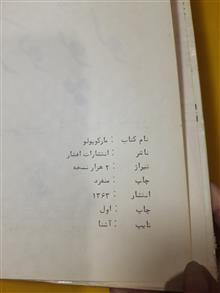 نام کتاب : مارکوپولو
ناشر : انتشارات افشار
تیراژ : ۲ هزار نسخه
چاپ : منفرد
انتشار : ۱۳۶۳
چاپ : اول
تایپ : آشنا